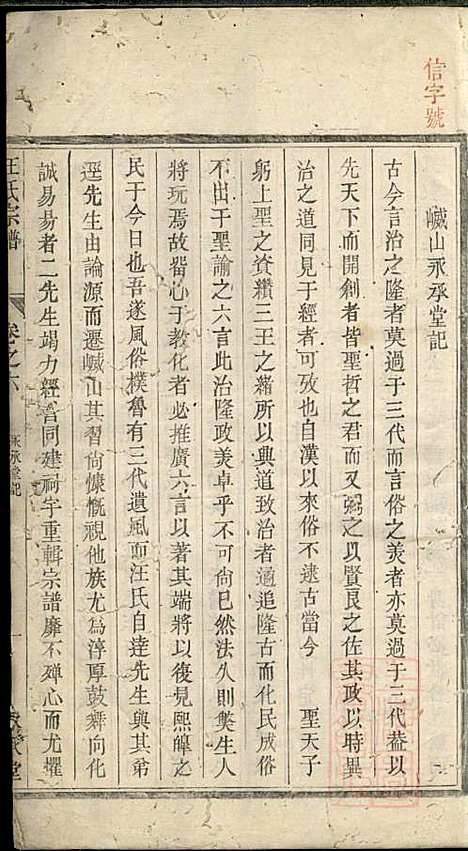 信字號
巘山永承堂記
古今言治之隆者莫過于三代而言俗之美者亦莫過于三代蓋以
先天下而開創者皆聖哲之君而又弼之以賢良之佐其政以時異
治之道同見于經者可攷也自漢以來俗不逮古當今 聖天子
躬上聖之資纘三王之緒所以興道致治者遹追隆古而化民成俗
不出于聖諭之六言此治隆政美卓乎不可尚已然法久則獘生人
將玩焉故畱心于教化者必推廣六言以著其端將以復見熙皡之
民于今日也吾遂風俗樸魯有三代遺風而汪氏自逹先生與其弟
逕先生由論源而遷巘山其習尚慷慨視他族尤為淳厚鼓舞向化
誠易易者二先生竭力經營同建祠宇重輯宗譜靡不殫心而尤懼
汪氏宗譜
卷之六
永承堂記
堂